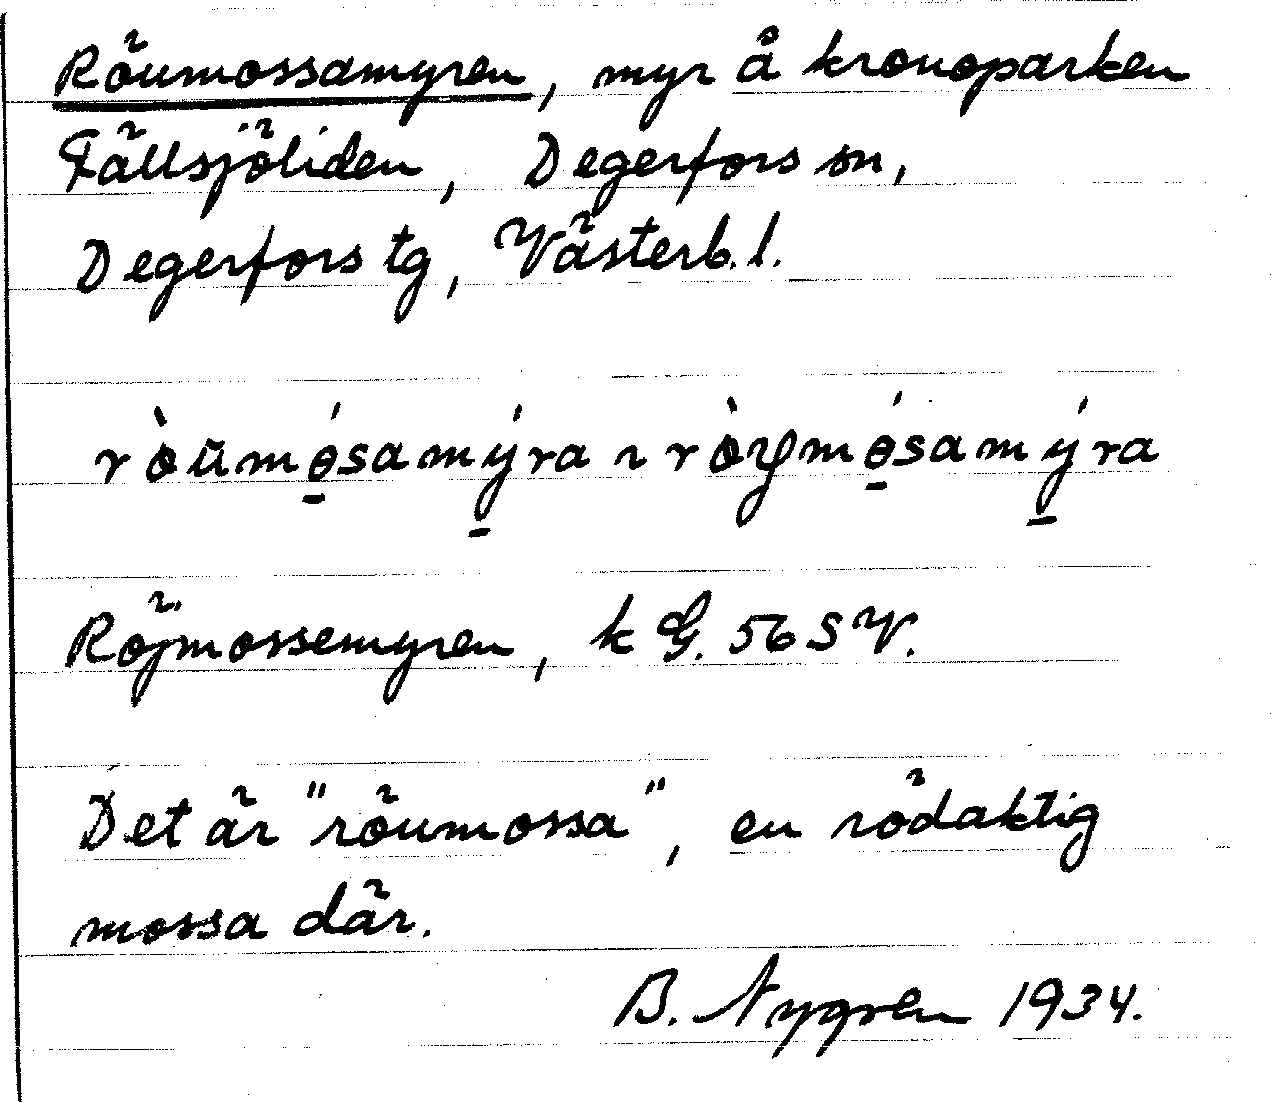 Röumossamyren, myr å kronoparken
Fällsjöliden, Degerfors sn,
Degerfors tg, Västerb. l.
Röjmossemyren, k G. 56 SV.
Det är "röumossa", en rödaktig
mossa där.
B. Nygren 1934.